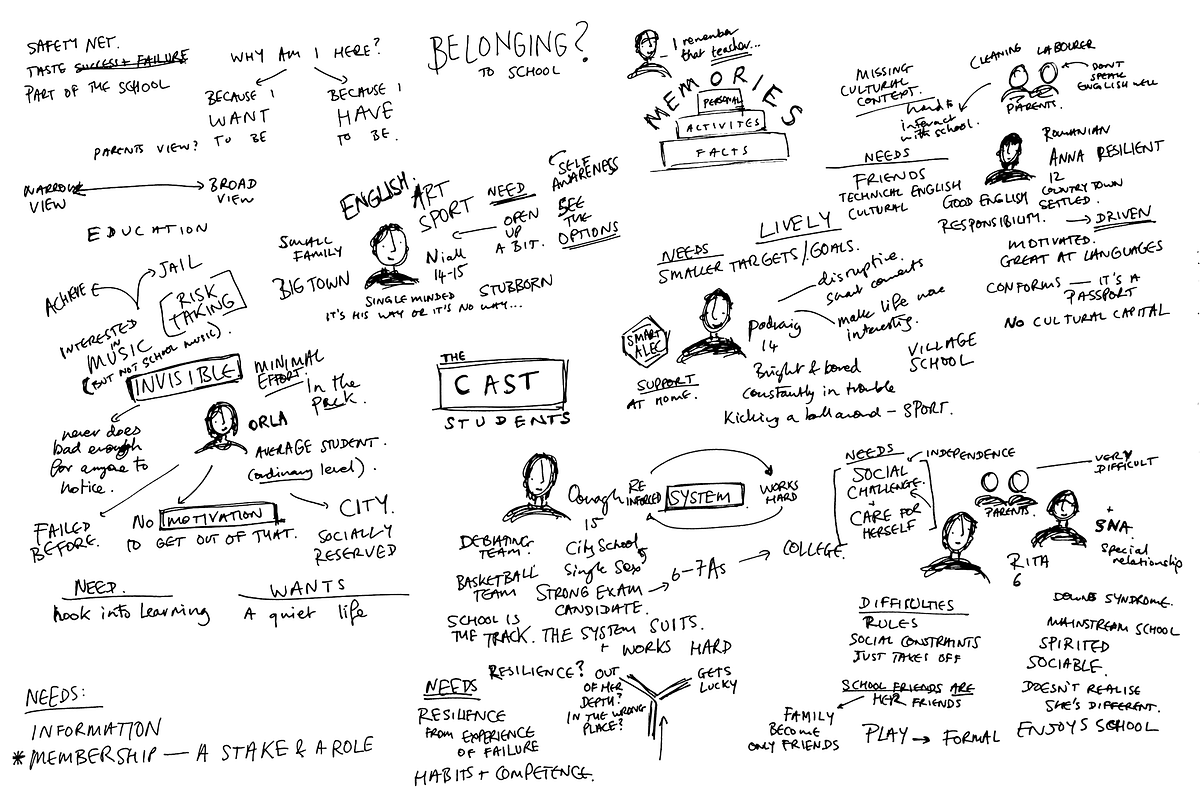 SAFETY NET.
TASTE SUCCESS + FAILURE
PART OF THE SCHOOL
WHY AM I HERE?
BECAUSE I
WANT
TO BE
BECAUSE I
HAVE
TO BE.
PARENTS VIEW?
NARROW
VIEW
BROAD
VIEW
EDUCATION
BELONGING?
TO SCHOOL
I remember
that teacher...
MEMORIES
PERSONAL
ACTIVITES
FACTS
MISSING
CULTURAL
CONTEXT.
CLEANING
LABOURER
DON'T
SPEAK
ENGLISH WELL
PARENTS.
hard to
interact
with school.
NEEDS
FRIENDS
TECHNICAL ENGLISH
CULTURAL
ROMANIAN
ANNA RESILIENT
12
COUNTRY TOWN
SETTLED.
GOOD ENGLISH
RESPONSIBILITY.
DRIVEN
MOTIVATED.
GREAT AT LANGUAGES
CONFORMS — IT'S A
PASSPORT
NO CULTURAL CAPITAL
ENGLISH.
ART
SPORT
NEED
SELF
AWARENESS
OPEN
UP
A BIT.
SEE
THE
OPTIONS
SMALL
FAMILY
BIG TOWN
Niall
14-15
SINGLE MINDED
STUBBORN
IT'S HIS WAY OR IT'S NO WAY...
LIVELY
NEEDS
SMALLER TARGETS/GOALS.
disruptive.
smart comments
make life more
interesting.
Padraig
14
SMART
ALEC
SUPPORT
AT HOME.
VILLAGE
SCHOOL
Bright & bored
constantly in trouble
Kicking a ball around - SPORT.
ACHIEVE
JAIL
RISK
TAKING
INTERESTED
IN
MUSIC
(BUT NOT SCHOOL MUSIC).
INVISIBLE
MINIMAL
EFFORT.
In the
pack.
ORLA
never does
bad enough
for anyone to
notice.
AVERAGE STUDENT.
(ordinary level).
FAILED
BEFORE.
NO MOTIVATION
TO GET OUT OF THAT.
CITY.
SOCIALLY
RESERVED
NEED.
hook into learning
WANTS
A quiet life
NEEDS:
INFORMATION
* MEMBERSHIP — A STAKE & A ROLE
THE
CAST
STUDENTS
Oonagh
15
RE
INFORCED
SYSTEM
WORKS
HARD
DEBATING
TEAM.
BASKETBALL
TEAM
City School
Single Sex
STRONG EXAM
CANDIDATE.
6-7As
COLLEGE.
SCHOOL IS
THE TRACK. THE SYSTEM SUITS.
+ WORKS HARD
RESILIENCE?
OUT
OF HER
DEPTH?
IN THE WRONG
PLACE?
GETS
LUCKY
NEEDS
RESILIENCE
FROM EXPERIENCE
OF FAILURE
HABITS + COMPETENCE.
NEEDS
INDEPENDENCE
SOCIAL
CHALLENGE.
+
CARE FOR
HERSELF
VERY
DIFFICULT
PARENTS.
+
SNA
Special
relationship
RITA
6
DIFFICULTIES
RULES
SOCIAL CONSTRAINTS
JUST TAKES OFF
SCHOOL FRIENDS ARE
HER FRIENDS
FAMILY
BECOME
ONLY FRIENDS
PLAY → FORMAL
DOWNS SYNDROME.
MAINSTREAM SCHOOL
SPIRITED
SOCIABLE.
DOESN'T REALISE
SHE'S DIFFERENT.
ENJOYS SCHOOL